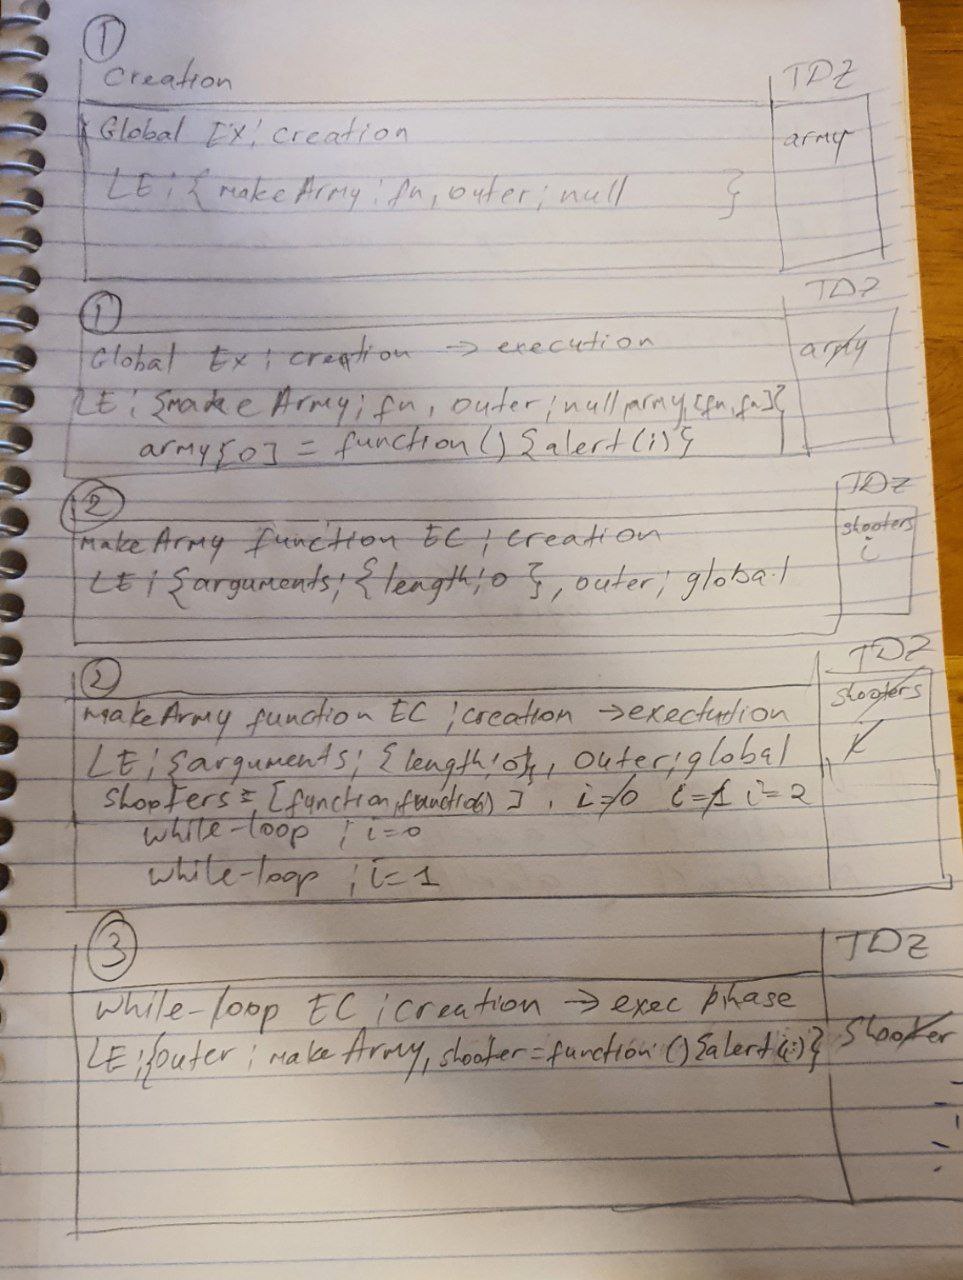 ①
Creation TDZ
Global EX; creation army
LE; { makeArmy; fn, outer; null }
① TDZ
Global Ex; creation → execution army
LE; {make Army; fn, outer; null, army, [fn, fn]}
army[0] = function() {alert(i)}
② TDZ
Make Army function EC; creation shooters
i
LE; {arguments; {length; 0 }, outer; global
② TDZ
Make Army function EC; creation → exectution shooters
LE; {arguments; {length; 0}, outer; global i
shooters = [function, function) ], i=0 i=1 i=2
while-loop ; i=0
while-loop ; i=1
③ TDZ
While-loop EC; creation → exec phase
LE; {outer; make Army, shooter = function () {alert(i)} shooter